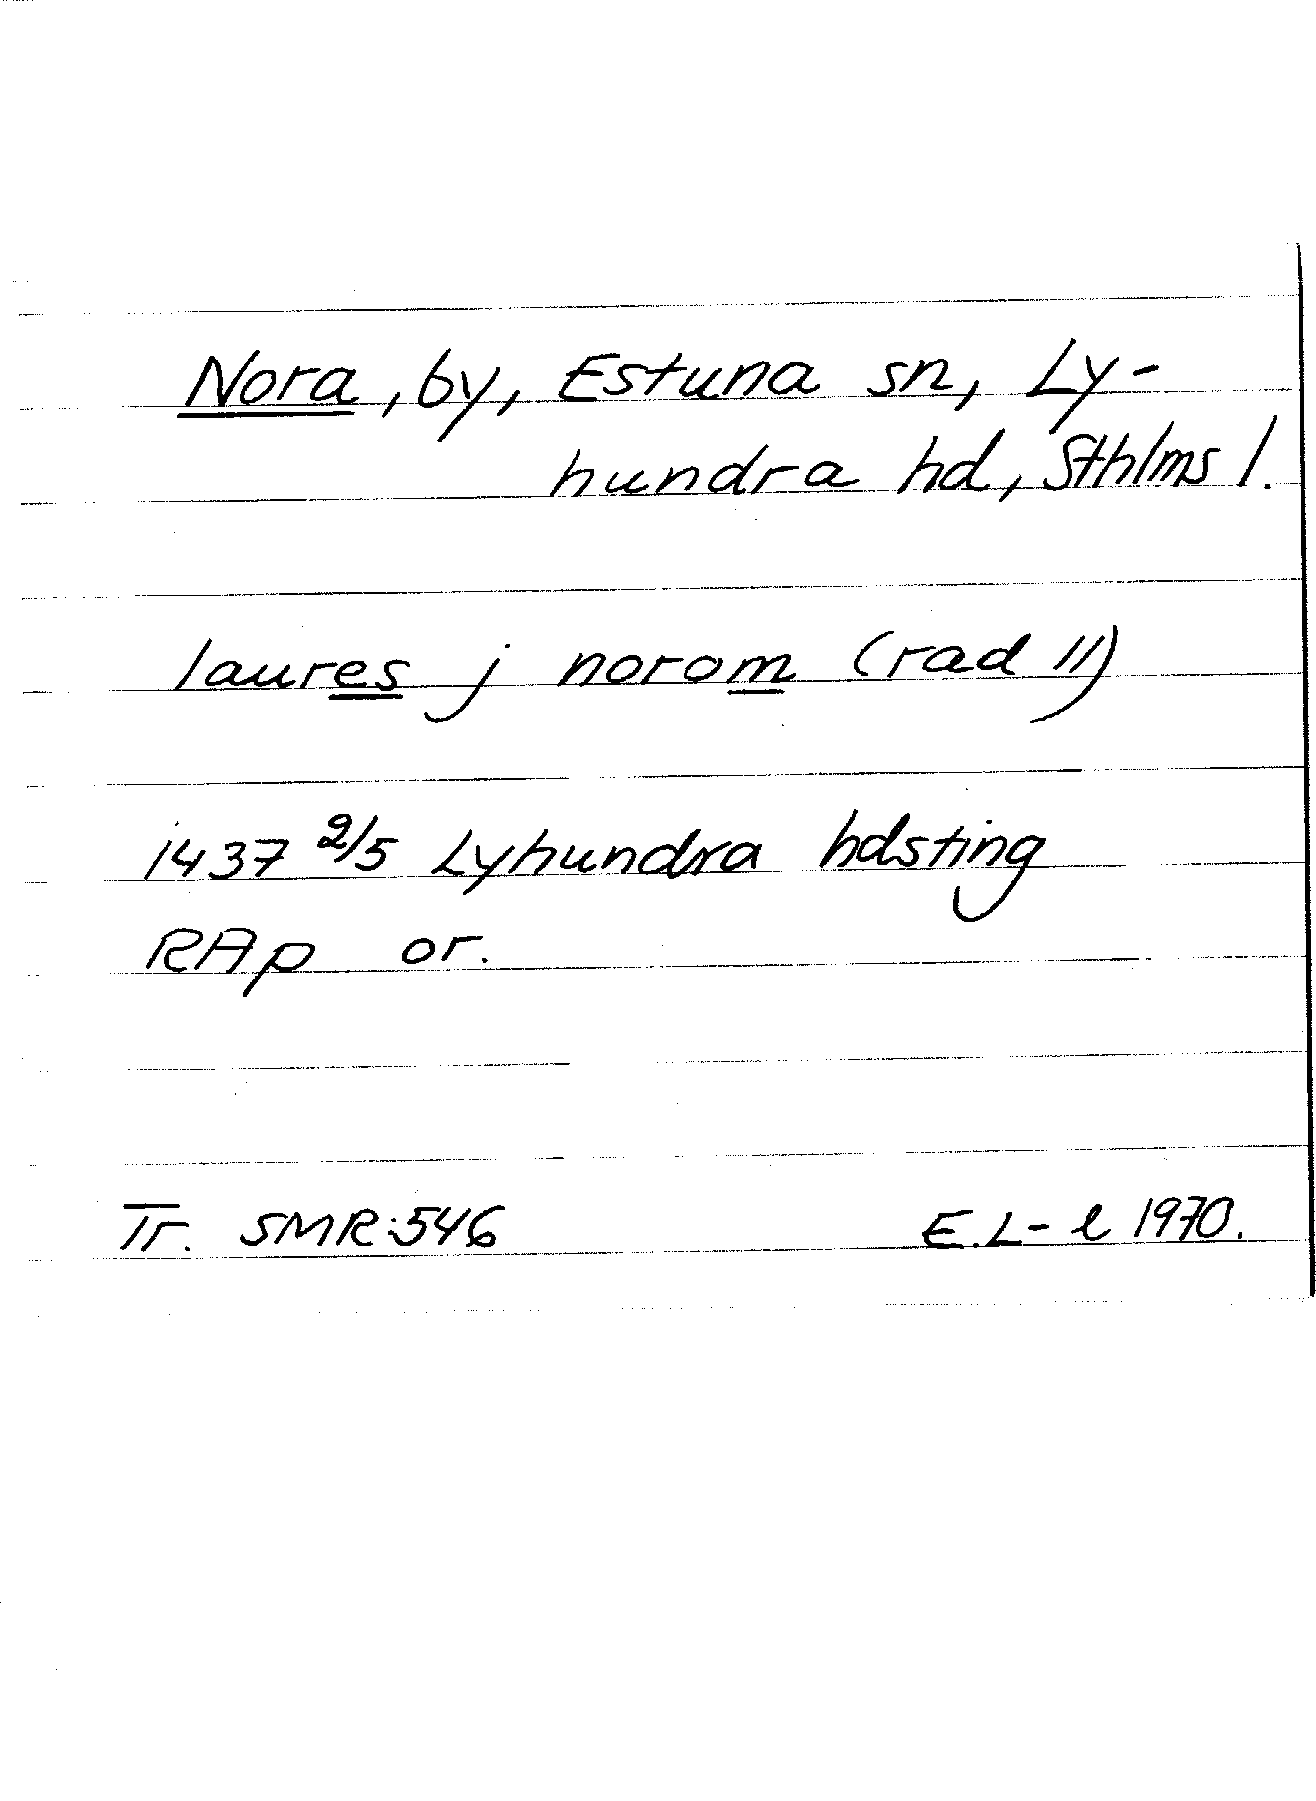 Nora, by, Estuna sn, Ly-
hundra hd, Sthlms l.
laures j norom (rad 11)
1437 2/5 Lyhundra hdsting
RAp or.
Tr. SMR:546 E.L-l 1970.